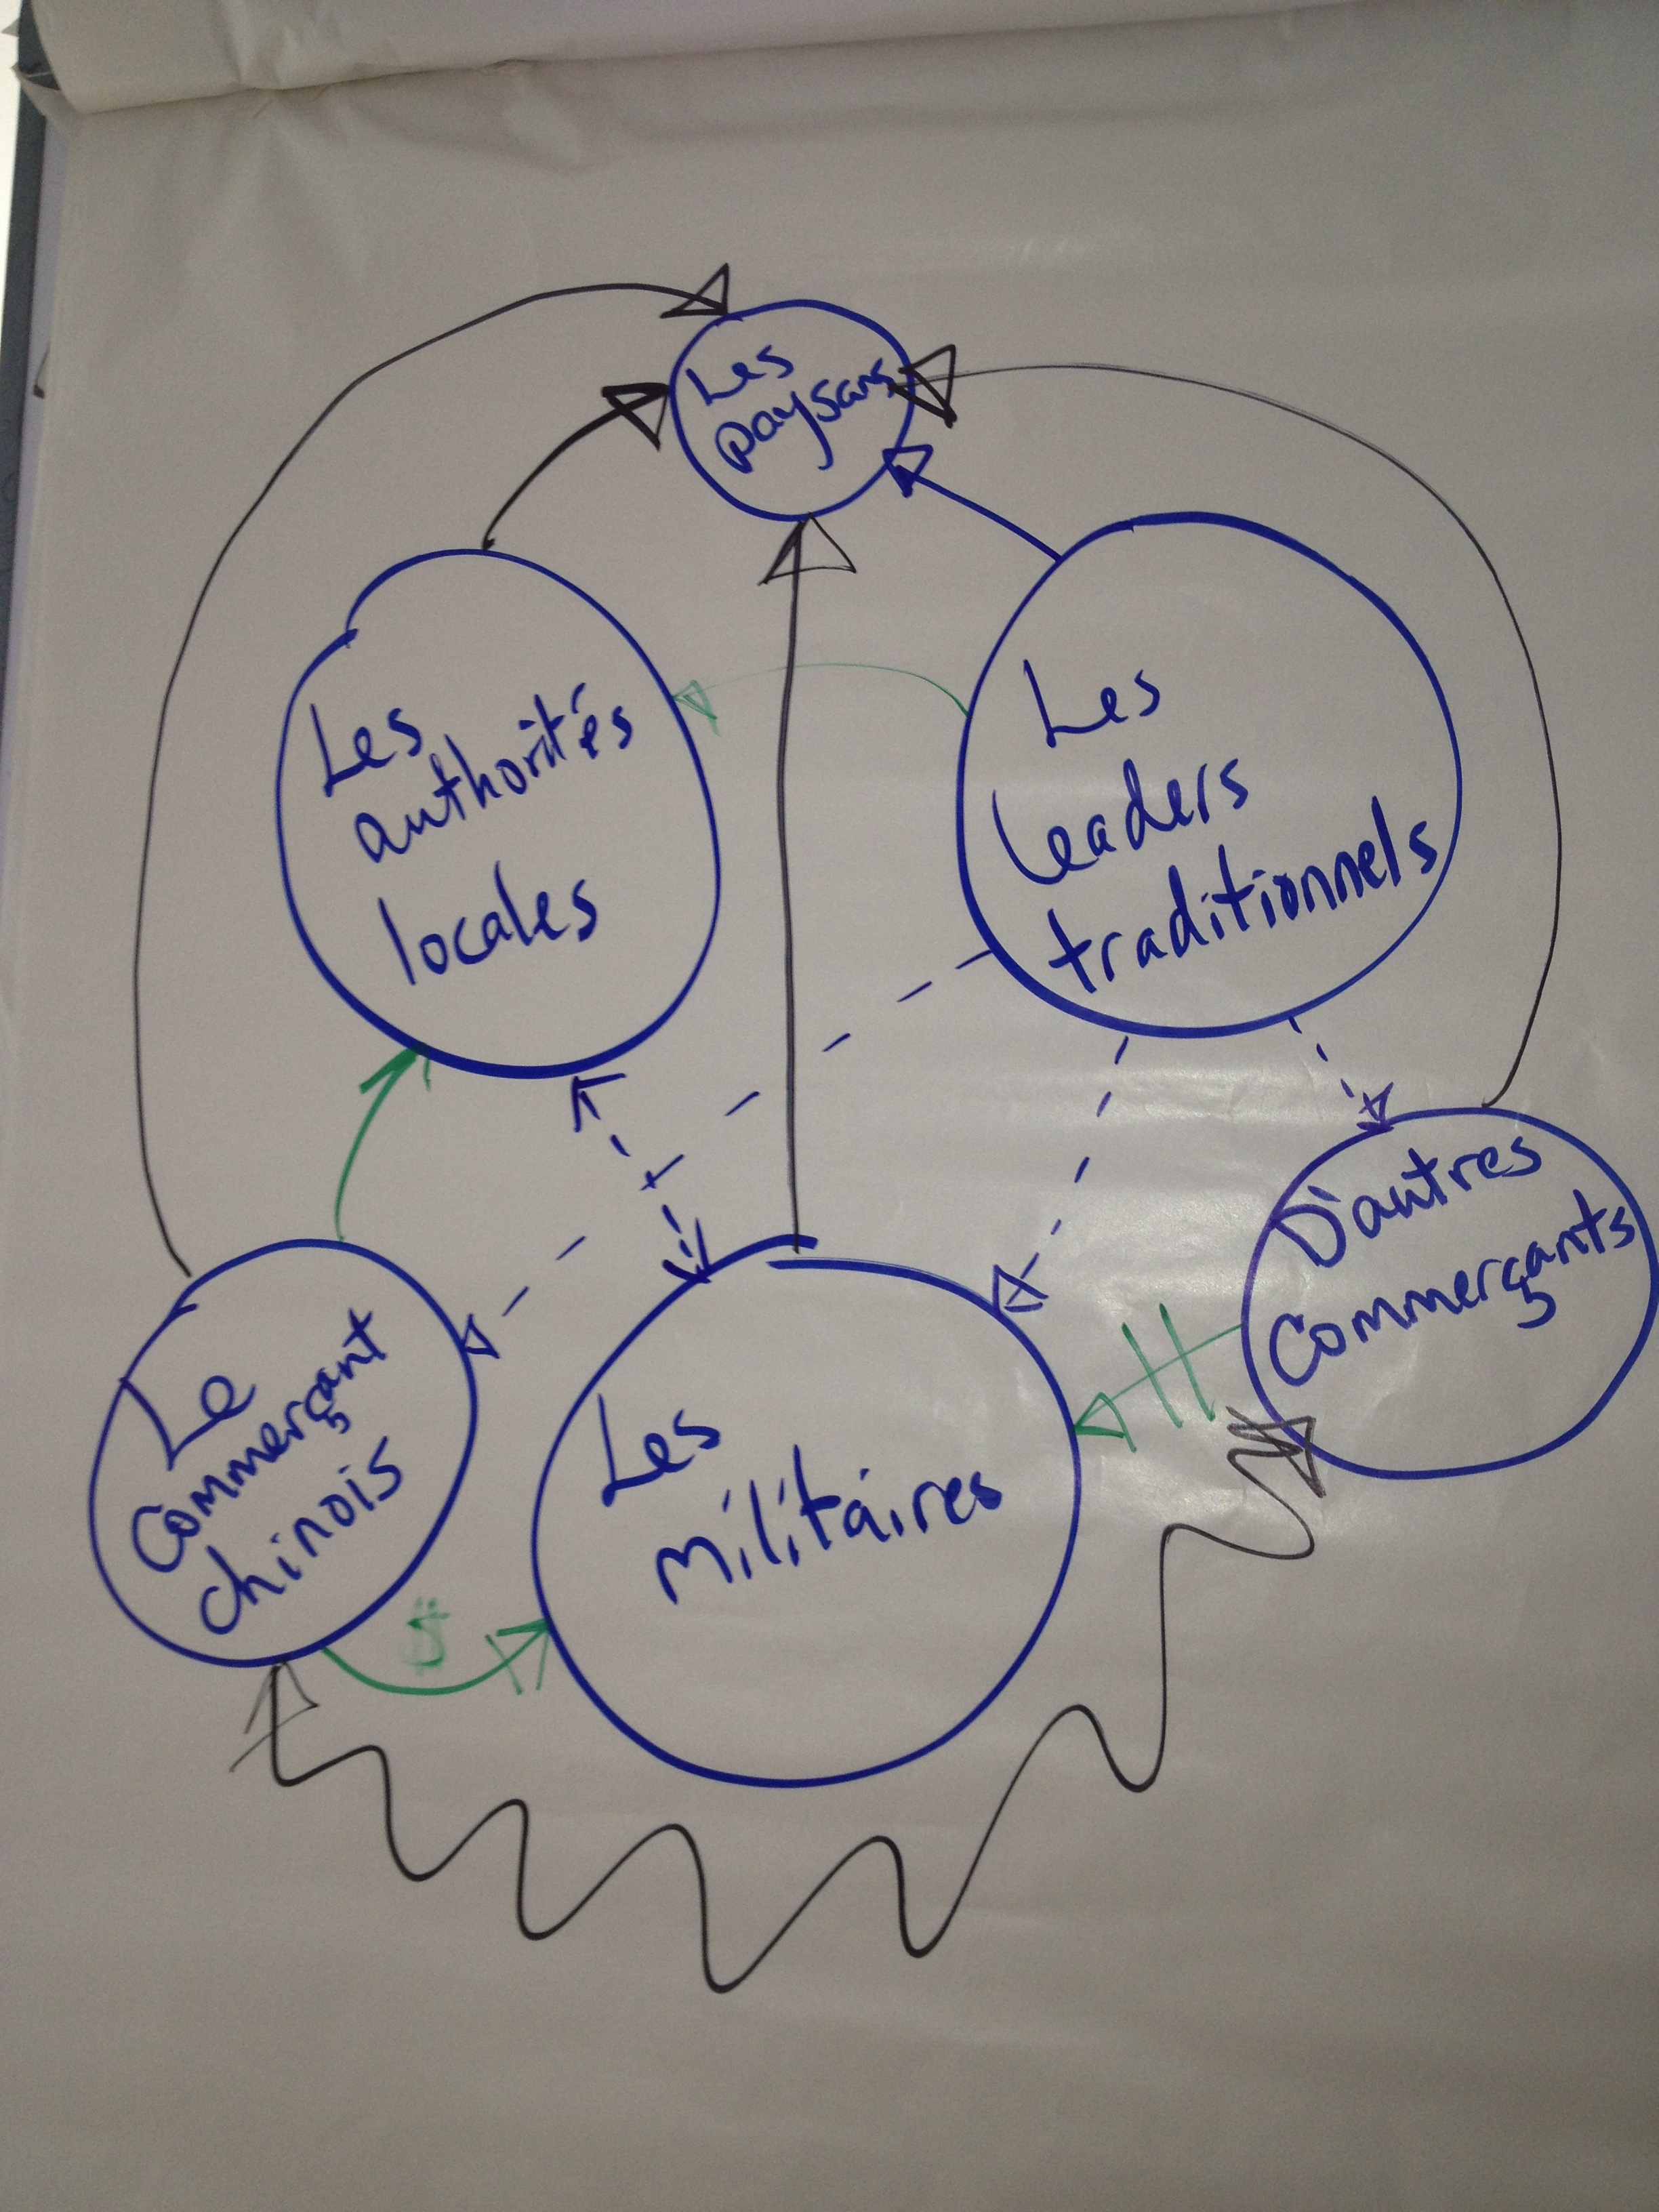 Les
paysans
Les
authorités
locales
Les
leaders
traditionnels
D'autres
Commerçants
Le
Commerçant
chinois
Les
militaires